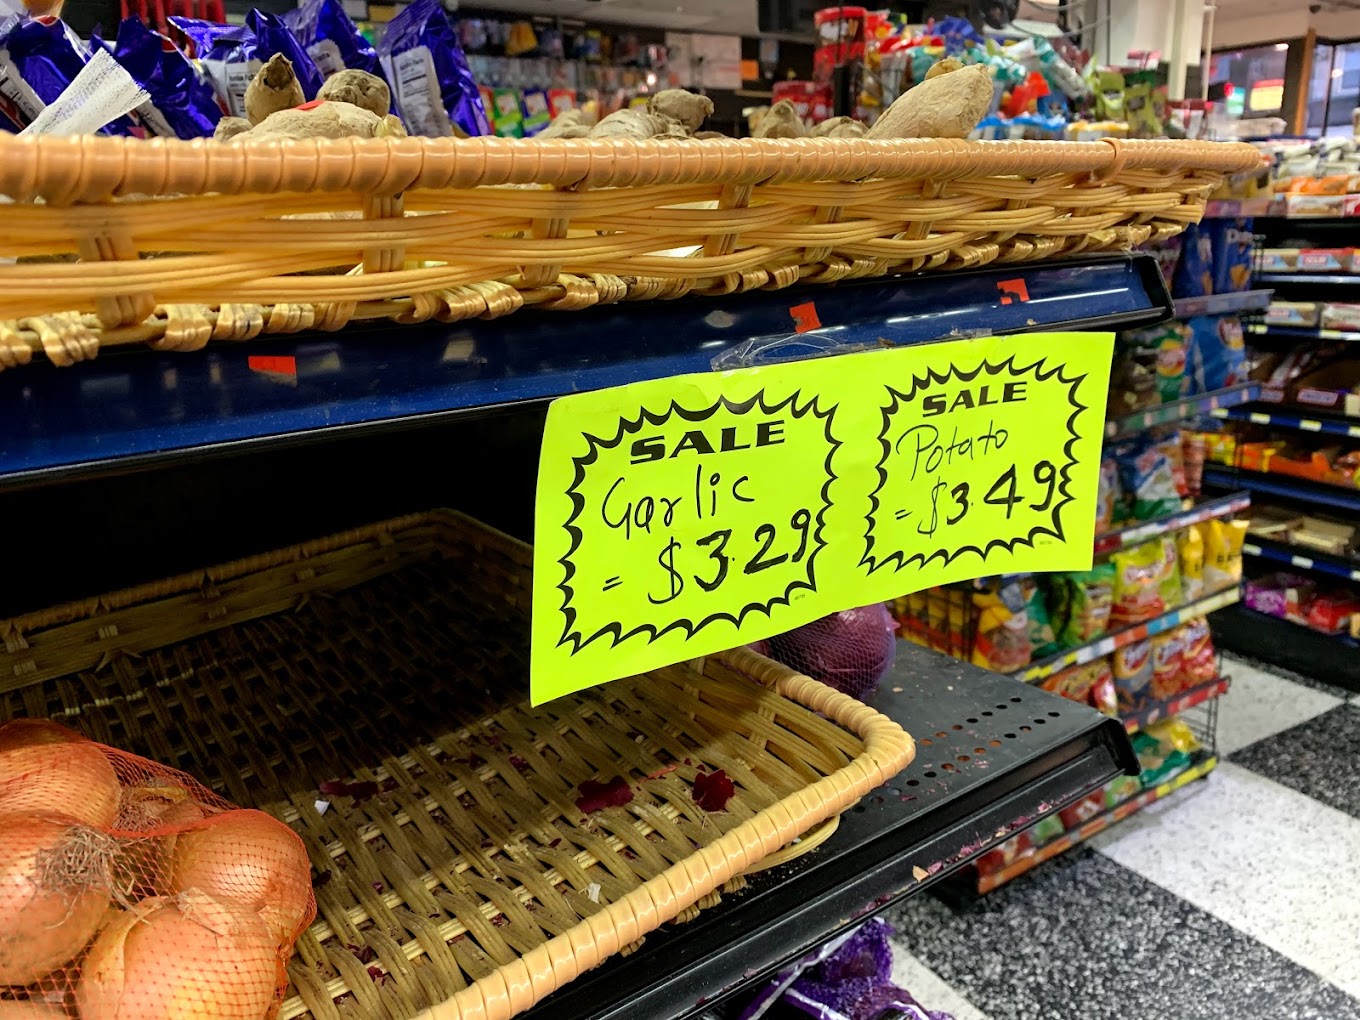 SALE
Garlic
= $3.29
SALE
Potato
= $3.49